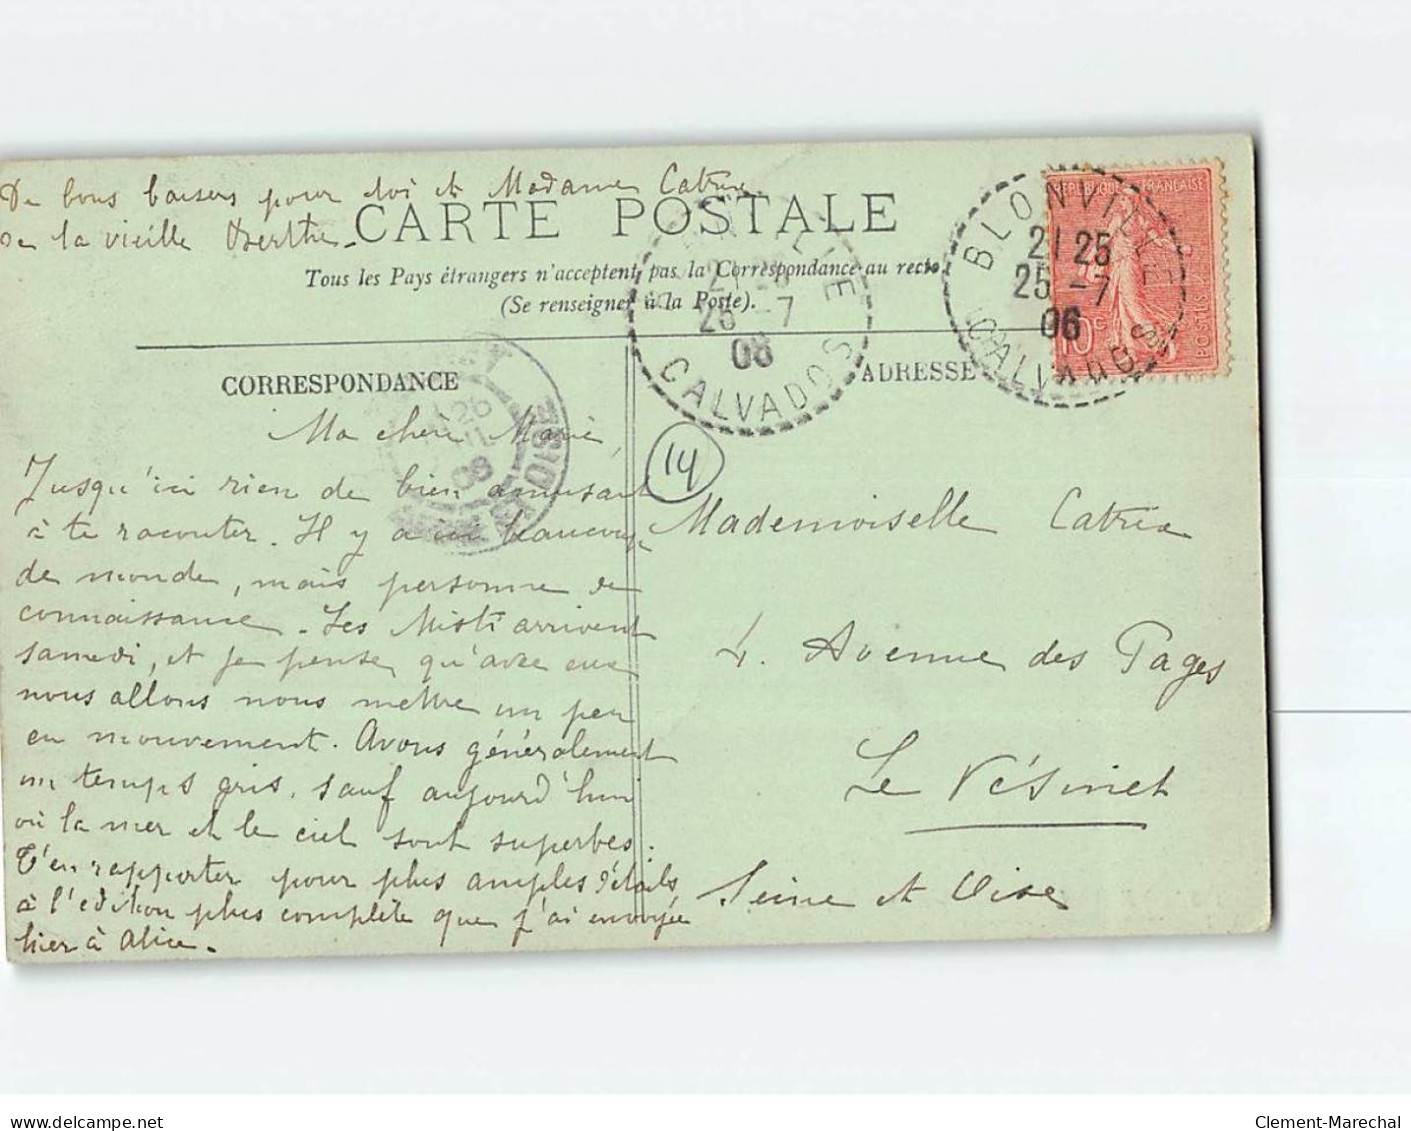 De bons baisers pour toi et Madame Catrix
de la vieille Berthe.
CARTE POSTALE
Tous les Pays étrangers n'acceptent pas la Correspondance au recto
(Se renseigner à la Poste).
RÉPUBLIQUE FRANÇAISE
10 c
POSTES
BLONVILLE
21 25
25 -7
06
CALVADOS
21 25
25 -7
06
CALVADOS
26
06
ET OISE
CORRESPONDANCE
ADRESSE
14
Ma chère Marie,
Jusqu'ici rien de bien amusant
à te raconter. Il y a eu beaucoup
de monde, mais personne de
connaissance. Les Misti arrivent
samedi, et je pense qu'avec eux
nous allons nous mettre un peu
en mouvement. Avons généralement
un temps gris, sauf aujourd'hui
où la mer et le ciel sont superbes.
T'en rapporter pour plus amples détails
à l'édition plus complète que j'ai envoyée
hier à Alice.
Mademoiselle Catrix
4. Avenue des Pages
Le Vésinet
Seine et Oise
delcampe.net
Clement-Marechal